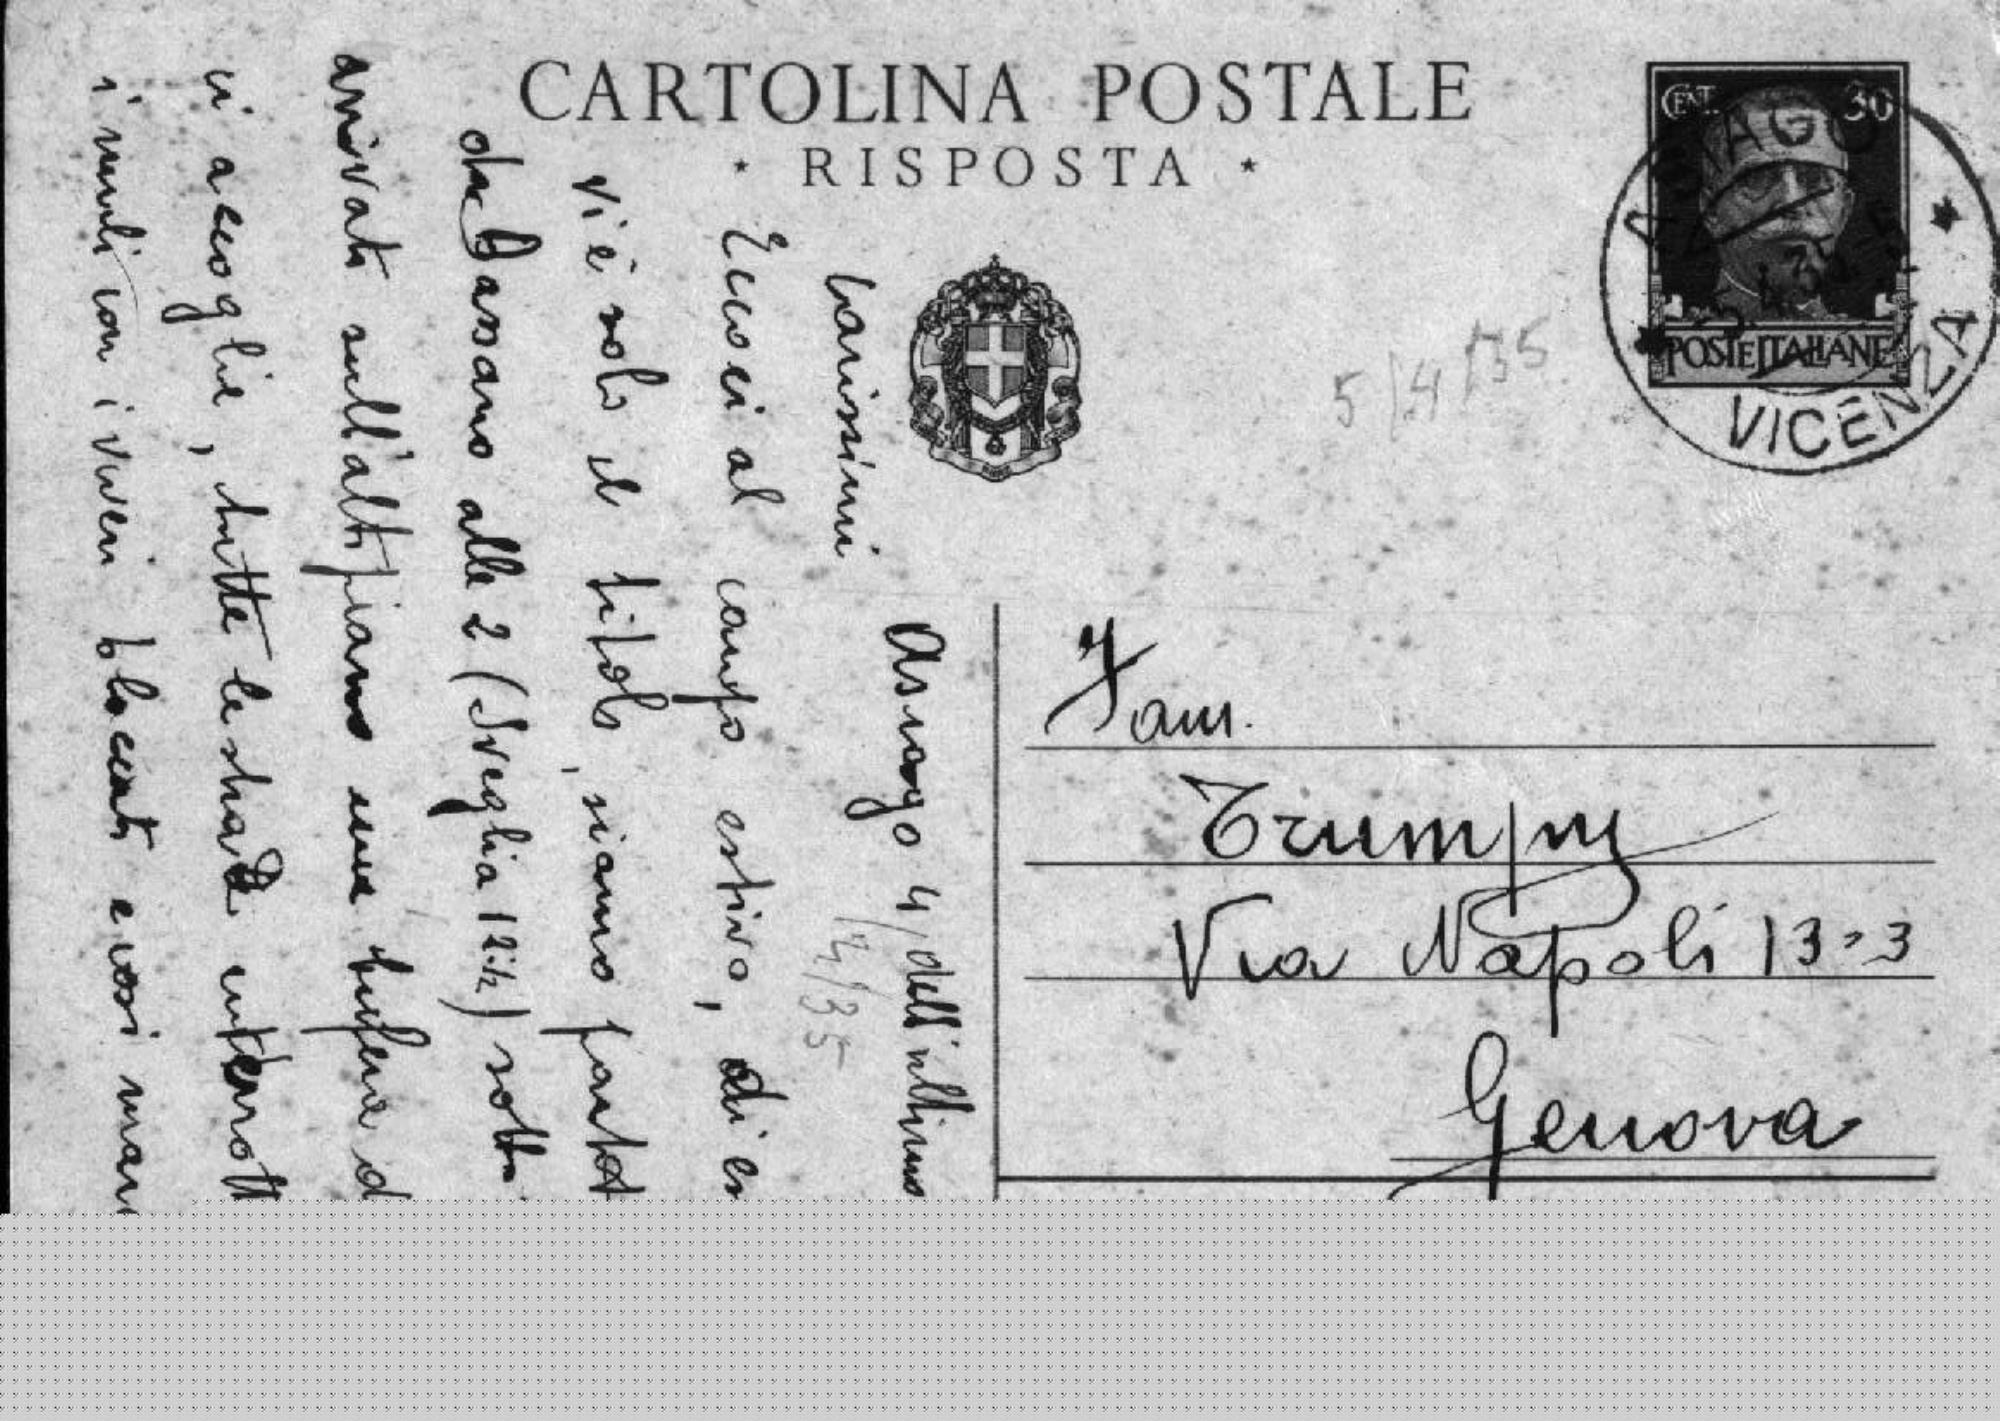 CARTOLINA POSTALE
* RISPOSTA *
CENT. 30
POSTE ITALIANE
ASIAGO
VICENZA
5/4/35
Fam.
Trumpy
Via Napoli 13-3
Genova
Asiago 4, dell'ultimo
4/35
Carissimi
Eccoci al campo estivo, di es
vi è solo il titolo, siamo partit
da Bassano alle 2 (Sveglia 12½) sotto
arrivati sull'altipiano una bufera d
ci accoglie, tutte le strade interrott
i muli con i viveri bloccati e così man